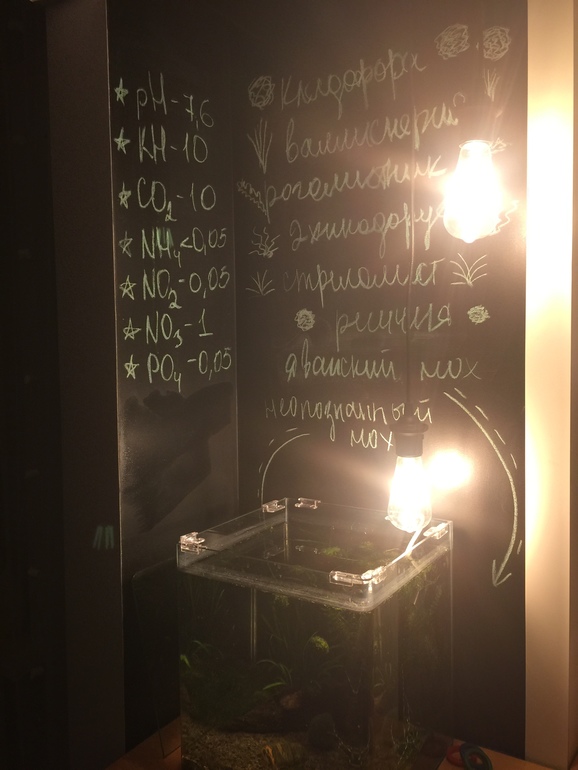 pH-7,6
KH-10
CO₂-10
NH₄<0,05
NO₂-0,05
NO₃-1
PO₄-0,05
Кладофора
валиснерия
роголистник
Эхинодорус
стрелолист
риччия
яванский мох
неопознанный
мох